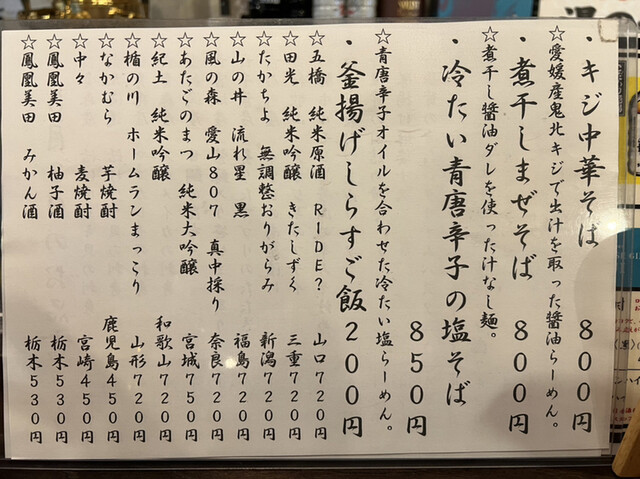 ・キジ中華そば　８００円
☆愛媛産鬼北キジで出汁を取った醤油らーめん。
・煮干しまぜそば　８００円
☆煮干し醤油ダレを使った汁なし麺。
・冷たい青唐辛子の塩そば
８５０円
☆青唐辛子オイルを合わせた冷たい塩らーめん。
・釜揚げしらすご飯２００円
☆五橋　純米原酒　ＲＩＤＥ？　山口７２０円
☆田光　純米吟醸　きたしずく　三重７２０円
☆たかちよ　無調整おりがらみ　新潟７２０円
☆山の井　流れ星　黒　福島７２０円
☆風の森　愛山８０７　真中採り　奈良７２０円
☆あたごのまつ　純米大吟醸　宮城７５０円
☆紀土　純米吟醸　和歌山７２０円
☆楯の川　ホームランまっこり　山形７２０円
☆なかむら　芋焼酎　鹿児島４５０円
☆中々　麦焼酎　宮崎４５０円
☆鳳凰美田　柚子酒　栃木５３０円
☆鳳凰美田　みかん酒　栃木５３０円